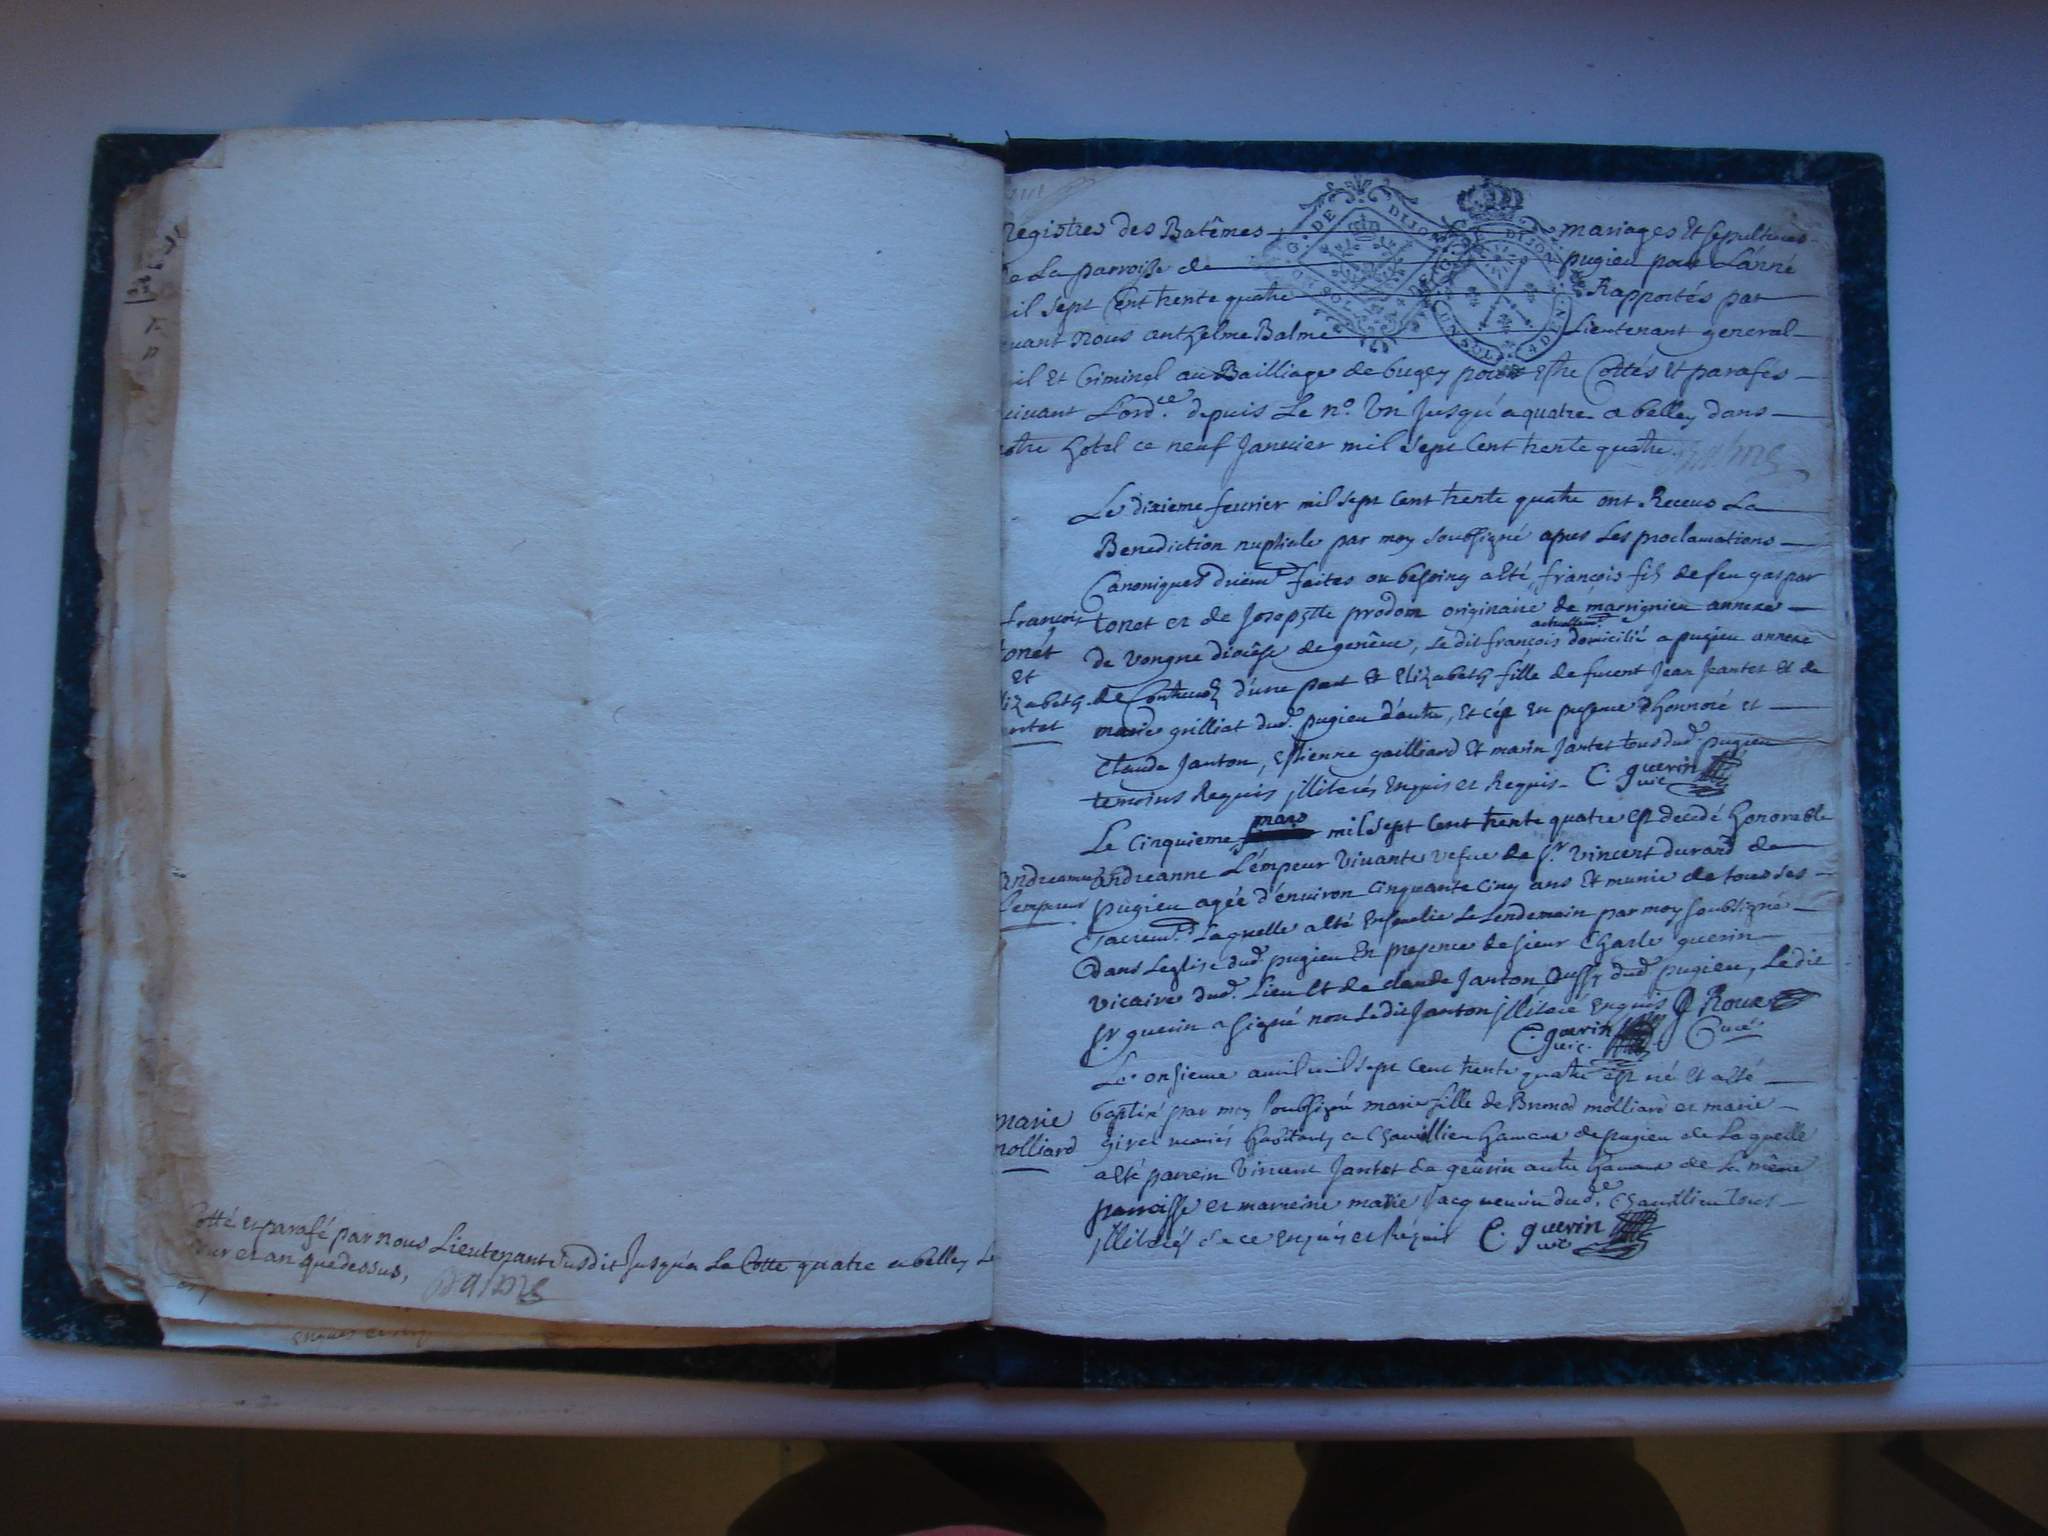 Cotté et parafé par nous Lieutenant susdit Jusqu'a La Cotte quatre a belley Le
Jour et an que dessus,
Balme
Registres des Batêmes mariages Et sepultures
de La parroisse de pugieu pour L'anné
mil sept Cent trente quatre Rapportés par
devant Nous anthelme Balme Lieutenant general
Civil Et Criminel au Bailliage de bugey pour Estre Cottés Et parafés
suivant L'ord.ce depuis Le n.º Un Jusqu'a quatre a belley dans
notre hotel ce neuf Janvier mil sept Cent trente quatre Balme
Le dixieme feuvrier mil sept cent trente quatre ont Receus La
Benediction nuptiale par moy soubsigné apres Les proclamations
Canoniques duëm.t faites ou besoing a Esté, françois fils de feu gaspar
francois
tonet et de Josephtte prodom originaire de marignieu annexe
tonét
actuellem.t
de Vongne diocêse de genêue, Le dit francois domicilié a pugieu annexe
Et
Elizabeth
de Contreuoz d'une part Et Elizabeth fille de furent Jean Jeantet Et de
marie grilliat dud.t pugieu d'autre, Et cést En presence d'honnoré et
Claude Janton, Estienne gailliard Et marin Jantet tous dud.t pugieu
temoins Requis illiterés Enquis et Requis. C. guerin vic
mars
Le Cinquieme mil sept Cent trente quatre Est decedé honorable
andreanne
andreanne L'émpeur Viuante vefue de S.r Vincent durand de
L'empeur
pugieu agée d'énuiron Cinquante Cinq ans Et munie de tous ses
Sacrem.ts Laquelle a Esté Enseuelie Le Lendemain par moy soubsigné
dans L'eglise dud.t pugieu En presence de sieur Charle guerin
vicaire dud.t Lieu Et de claude Janton aussy dud.t pugieu, Le dit
S.r guerin a signé non Le dit Janton illiteré Enquis Roux
C. guerin vic. Curé
Le onsieme auril mil sept Cent trente quatre Est né Et a Esté
marie
baptisé par moy soubsigné marie fille de molliard et marie
molliard
mariés habitants a Chauillieu hameau de pugieu de Laquelle
a Esté parrein Vincent Jantet de autre hameau de La même
parroisse et marreine marie Jacquemin dud.t Chauillieu tous
illiterés de ce Enquis et Réquis C. guerin vic